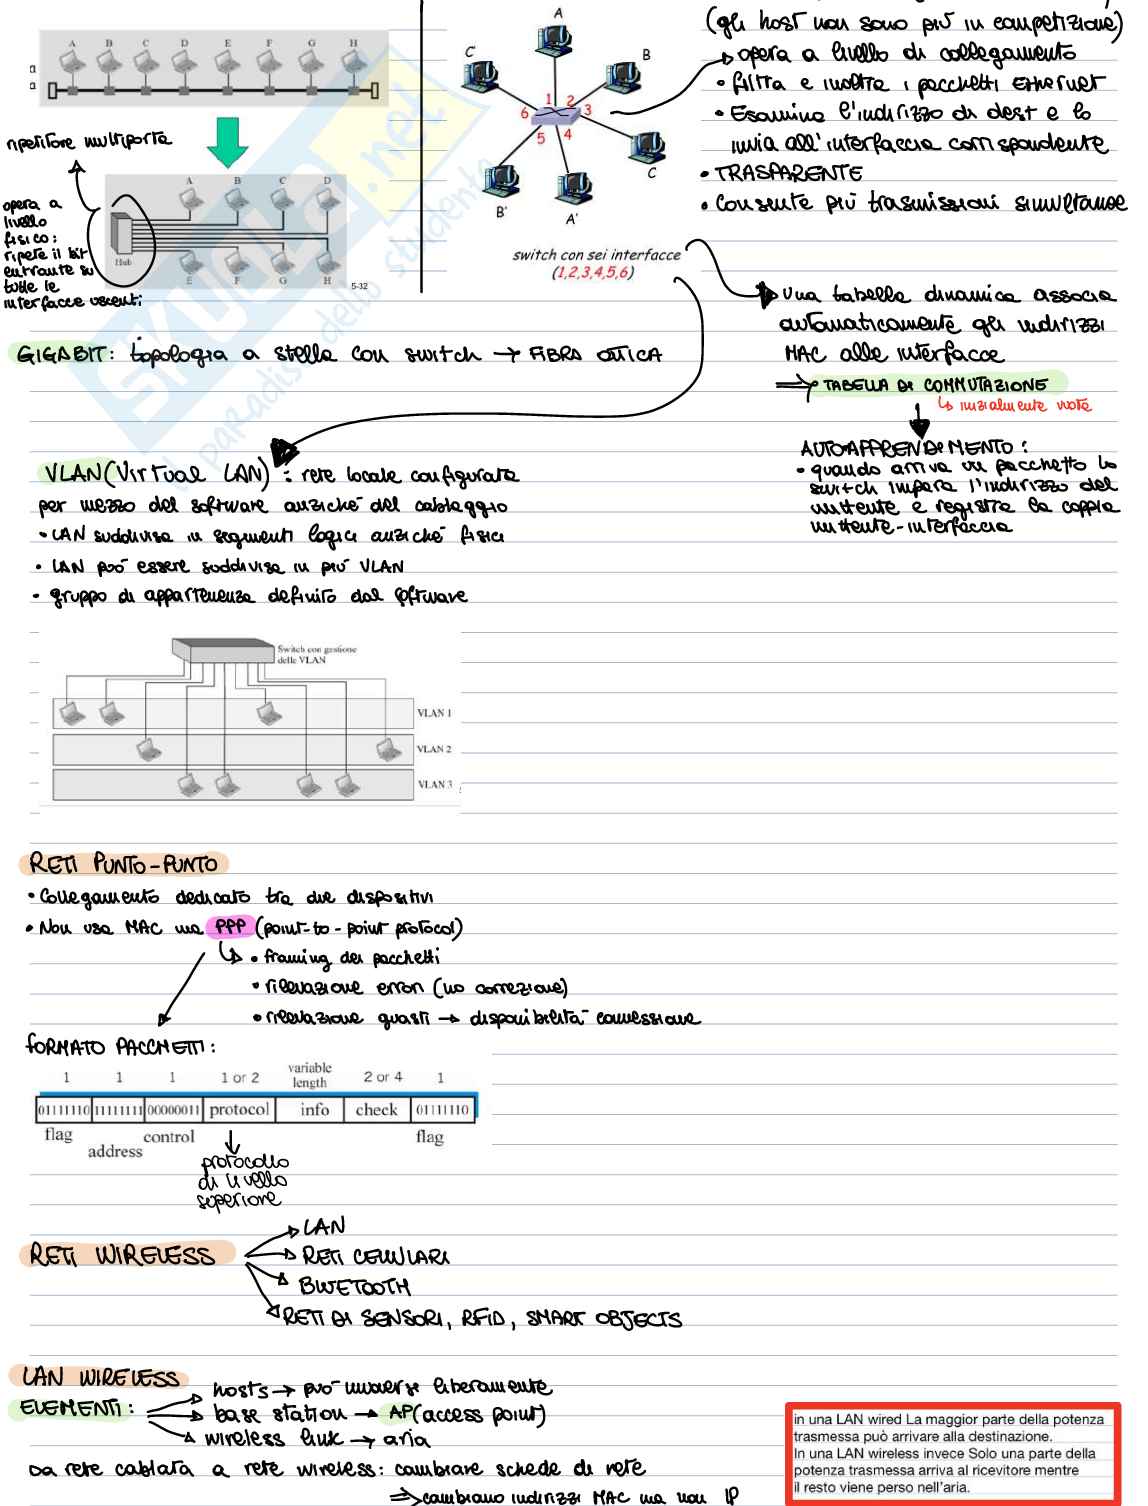 A B C D E F G H
ripetitore multiporta
A B C D
opera a
livello
fisico:
ripete il bit
entrante su
tutte le
interfacce uscenti
Hub
E F G H
5-32
A
C'
B
1 2
6 3
5 4
C
B'
A'
switch con sei interfacce
(1,2,3,4,5,6)
(gli host non sono più in competizione)
opera a livello di collegamento
• filtra e inoltra i pacchetti Ethernet
• Esamina l'indirizzo di dest e lo
invia all'interfaccia corrispondente
• TRASPARENTE
• Consente più trasmissioni simultanee
Una tabella dinamica associa
automaticamente gli indirizzi
MAC alle interfacce
⇒ TABELLA DI COMMUTAZIONE
↳ inizialmente vuota
AUTOAPPRENDIMENTO:
• quando arriva un pacchetto lo
switch impara l'indirizzo del
mittente e registra la coppia
mittente-interfaccia
GIGABIT: topologia a stella con switch → FIBRA OTTICA
VLAN (Virtual LAN): rete locale configurata
per mezzo del software anziché del cablaggio
• LAN suddivisa in segmenti logici anziché fisici
• LAN può essere suddivisa in più VLAN
• gruppo di appartenenza definito dal software
Switch con gestione
delle VLAN
VLAN 1
VLAN 2
VLAN 3
RETI PUNTO-PUNTO
• Collegamento dedicato tra due dispositivi
• Non usa MAC ma PPP (point-to-point protocol)
↳ • framing dei pacchetti
• rilevazione errori (no correzione)
• rilevazione guasti → disponibilità connessione
FORMATO PACCHETTI:
1 1 1 1 or 2 variable length 2 or 4 1
01111110 11111111 00000011 protocol info check 01111110
flag address control flag
protocollo
di livello
superiore
RETI WIRELESS
LAN
RETI CELLULARI
BLUETOOTH
RETI DI SENSORI, RFID, SMART OBJECTS
LAN WIRELESS
ELEMENTI:
hosts → può muoversi liberamente
base station → AP (access point)
wireless link → aria
Da rete cablata a rete wireless: cambiare schede di rete
⇒ cambiano indirizzi MAC ma non IP
in una LAN wired La maggior parte della potenza
trasmessa può arrivare alla destinazione.
In una LAN wireless invece Solo una parte della
potenza trasmessa arriva al ricevitore mentre
il resto viene perso nell'aria.
skuola.net
il paradiso dello studente